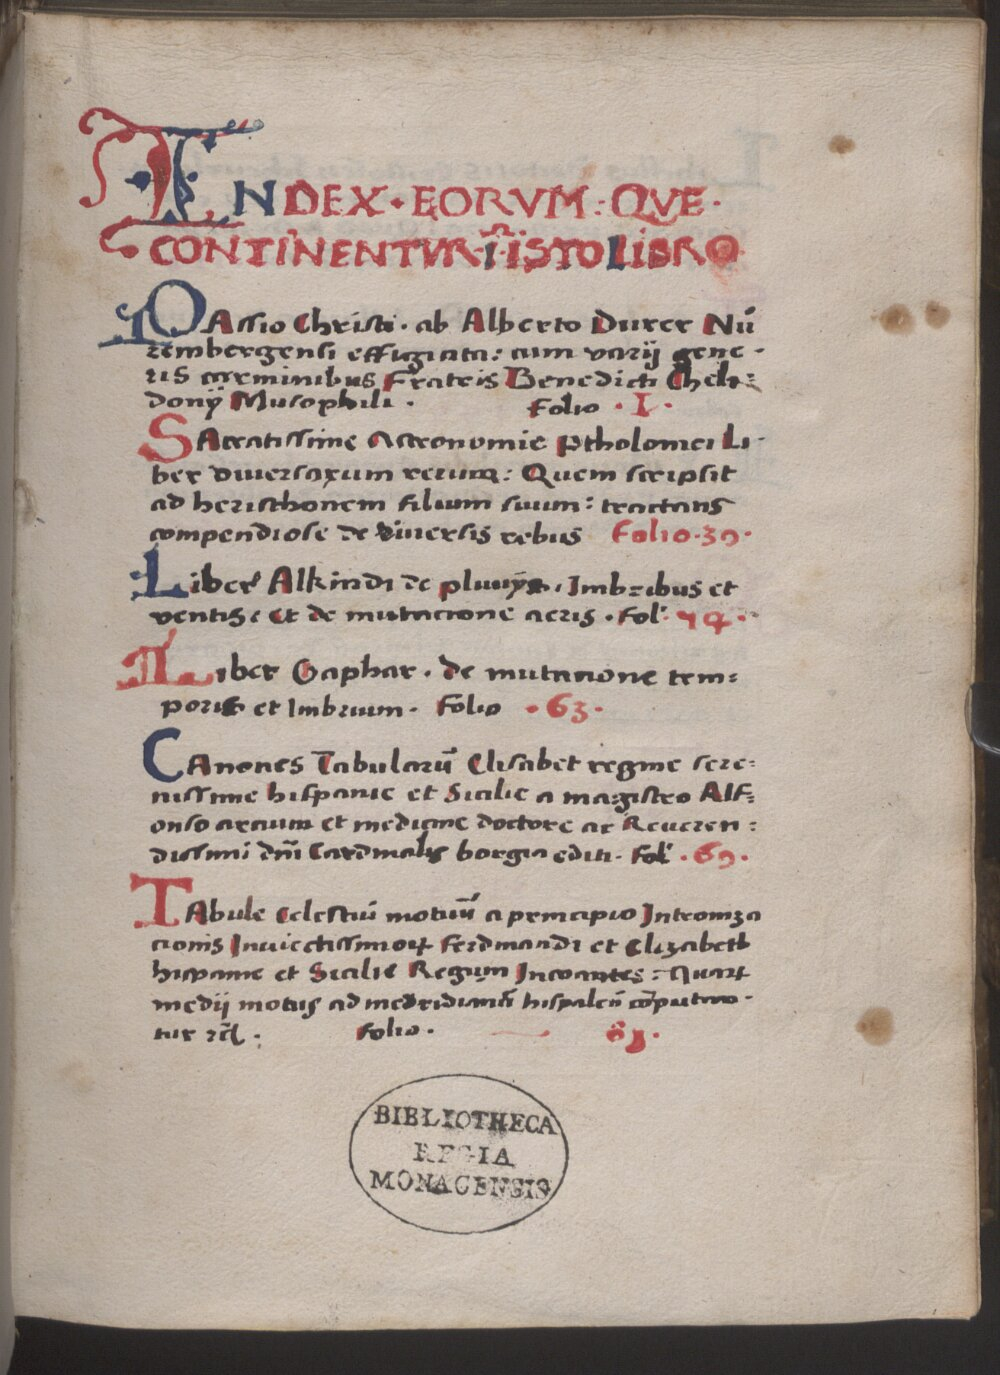 INDEX · EORVM : QVE ·
CONTINENTVR · ĩ · ISTO LIBRO
PAssio Christi · ab Alberto Durer Nũ
rembergensi effigiata : cum varij gene ·
ris carminibus Fratris Benedicti Cheli-
donij Musophili · Folio · I ·
SAcratissime Astronomie Ptholomei Li ·
ber diuersarum rerum : Quem scripsit
ad heristhonem filium suum : tractans
compendiose de diuersis rebus Folio · 39 ·
Liber Alkindi de pluuijs, Imbribus et
ventis : et de mutacione aeris · Fol · 54 ·
Liber Gaphar · de mutatione tem=
poris et Imbrium · Folio · 63 ·
CAnones Tabularũ Elisabet regine sere=
nissime hispanie et Sicilie a magistro Alf=
onso arcium et medicine doctore ac Reueren :
dissimi dñi Cardinalis borgia editi · Fol · 69 ·
TAbule celestiũ motuũ a principio Intronza
cionis Inuictissimorꝝ Ferdinandi et Elizabeth
hispanie et Sicilie Regum Incoantes : quarꝝ
medij motus ad meridianũ hispaleñ cõputan ·
tur ꝛc̃ · Folio · 81 ·
BIBLIOTHECA
REGIA
MONACENSIS